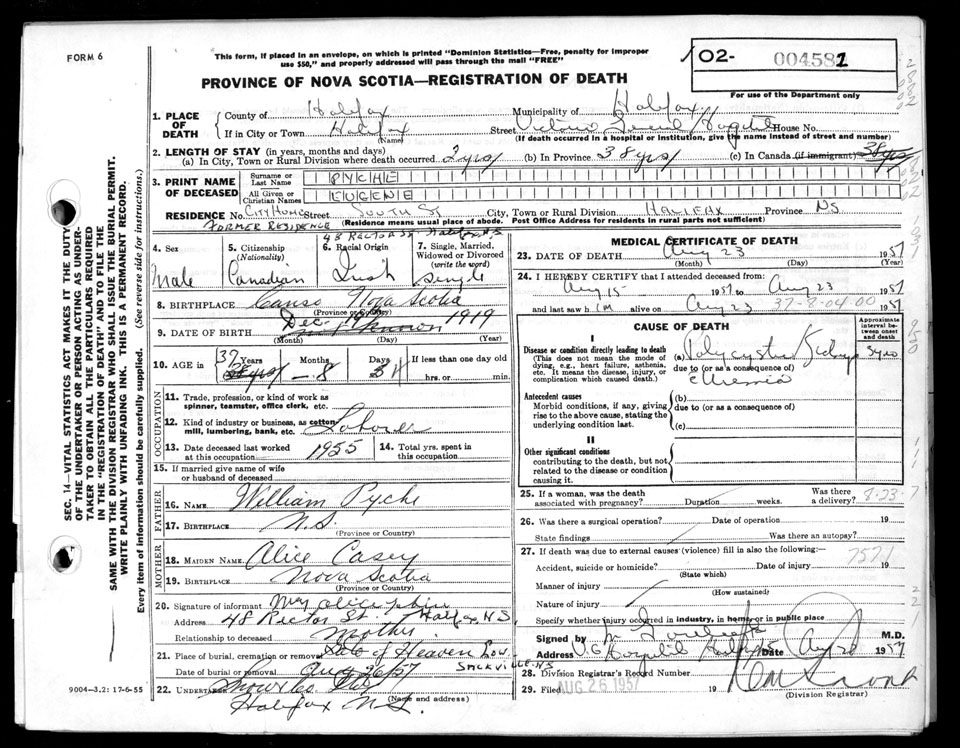 FORM 6
This form, if placed in an envelope, on which is printed "Dominion Statistics—Free, penalty for improper
use $50," and properly addressed will pass through the mail "FREE"
PROVINCE OF NOVA SCOTIA—REGISTRATION OF DEATH
02- 004582
For use of the Department only
1. PLACE OF DEATH
County of Halifax Municipality of Halifax
If in City or Town Halifax Street Victoria General Hospital House No.
(Name) (If death occurred in a hospital or institution, give the name instead of street and number)
2. LENGTH OF STAY (in years, months and days)
(a) In City, Town or Rural Division where death occurred 2 yrs (b) In Province 38 yrs (c) In Canada (if immigrant) 38 yrs
3. PRINT NAME OF DECEASED
Surname or Last Name PYCHE
All Given or Christian Names EUGENE
RESIDENCE No. CITY HOME Street SOUTH ST City, Town or Rural Division HALIFAX Province NS
(Residence means usual place of abode. Post Office Address for residents in rural parts not sufficient)
FORMER RESIDENCE 48 RECTOR ST. Halifax NS
4. Sex Male
5. Citizenship (Nationality) Canadian
6. Racial Origin Irish
7. Single, Married, Widowed or Divorced (write the word) Single
8. BIRTHPLACE Canso Nova Scotia
(Province or Country)
9. DATE OF BIRTH Dec. 1919
(Month) (Day) (Year)
10. AGE in 37 Years 8 Months Days If less than one day old
hrs. or min.
OCCUPATION
11. Trade, profession, or kind of work as
spinner, teamster, office clerk, etc.
12. Kind of industry or business, as cotton
mill, lumbering, bank, etc. Laborer
13. Date deceased last worked
at this occupation 1955
14. Total yrs. spent in
this occupation
15. If married give name of wife
or husband of deceased
FATHER
16. NAME William Pyche
17. BIRTHPLACE N.S.
(Province or Country)
MOTHER
18. MAIDEN NAME Alice Casey
19. BIRTHPLACE Nova Scotia
(Province or Country)
20. Signature of informant Mrs Alice
Address 48 Rector St. Halifax N.S.
Relationship to deceased Mother
21. Place of burial, cremation or removal Gate of Heaven Low. SACKVILLE NS
Date of burial or removal Aug 26/57
22. UNDERTAKER Snow & Co Ltd
(Name and address)
Halifax N.S.
9004-3.2: 17-6-55
MEDICAL CERTIFICATE OF DEATH
23. DATE OF DEATH Aug 23 1957
(Month) (Day) (Year)
24. I HEREBY CERTIFY that I attended deceased from:
Aug 15 1957 to Aug 23 1957
and last saw him alive on Aug 23 1957
37-8-04 00
CAUSE OF DEATH
Approximate interval between onset and death
I
Disease or condition directly leading to death
(This does not mean the mode of dying, e.g., heart failure, asthenia, etc. It means the disease, injury, or complication which caused death.)
(a) Polycystic Kidneys
due to (or as a consequence of)
Uremia
Antecedent causes
Morbid conditions, if any, giving rise to the above cause, stating the underlying condition last.
(b)
due to (or as a consequence of)
(c)
II
Other significant conditions
contributing to the death, but not related to the disease or condition causing it.
25. If a woman, was the death
associated with pregnancy? Duration weeks. Was there a delivery?
8-23-7
26. Was there a surgical operation? Date of operation 19
State findings Was there an autopsy?
27. If death was due to external causes (violence) fill in also the following:—
Accident, suicide or homicide? Date of injury 19
7571
(State which)
Manner of injury
(How sustained)
Nature of injury
Specify whether injury occurred in industry, in home, or in public place
Signed by M.D.
Address V.G. Hospital Halifax Date Aug 1957
28. Division Registrar's Record Number
29. Filed AUG 26 1957 19
(Division Registrar)
SEC. 14—VITAL STATISTICS ACT MAKES IT THE DUTY
OF THE UNDERTAKER OR PERSON ACTING AS UNDER-
TAKER TO OBTAIN ALL THE PARTICULARS REQUIRED
IN THE "REGISTRATION OF DEATH" AND TO FILE THE
SAME WITH THE DIVISION REGISTRAR WHO SHALL ISSUE THE BURIAL PERMIT.
WRITE PLAINLY WITH UNFADING INK. THIS IS A PERMANENT RECORD.
Every item of information should be carefully supplied. (See reverse side for instructions.)